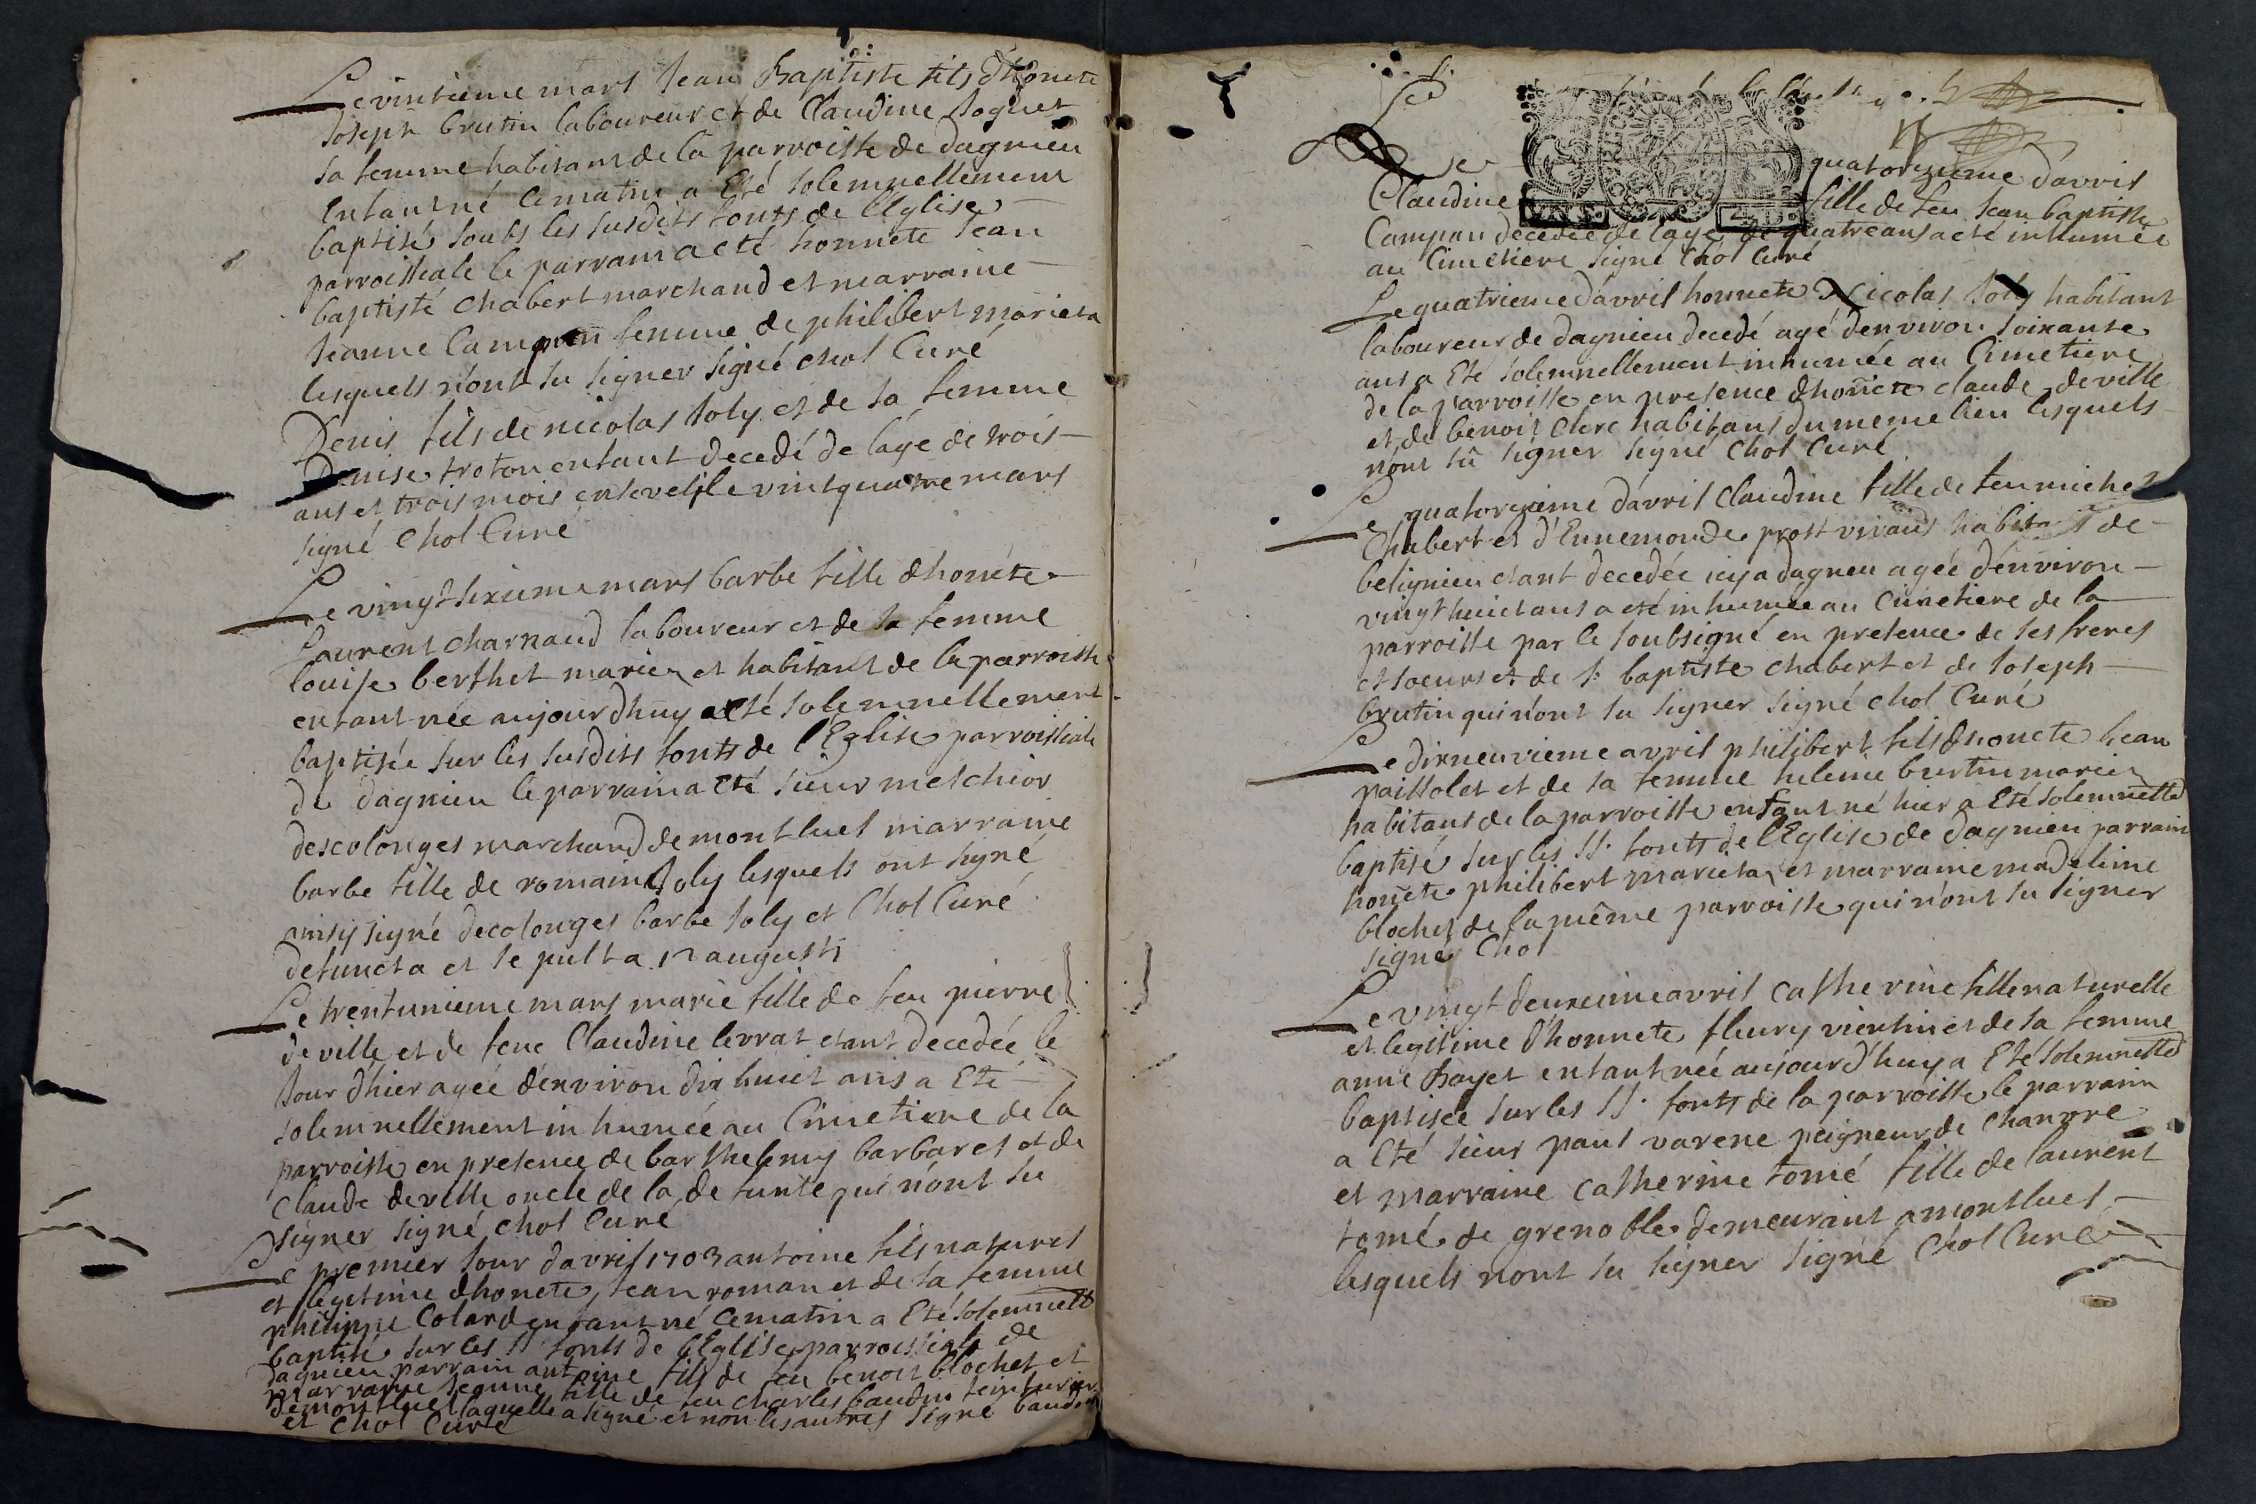 Le vintieme mars Jean Baptiste fils d'honete
Joseph brutin laboureur et de Claudine Joguet
sa femme habitans de la parroisse de dagnieu
enfant né ce matin a Eté solemnellement
baptisé soubs les susdits fonts de l'Eglise
parroissiale le parrain a eté honnete Jean
baptiste chabert marchand et marraine
Jeanne Campan femme de philibert marieta
lesquels n'ont su signer signé chol Curé
Denis fils de nicolas Joly et de sa femme
Denise troton enfant decedé de l'age de trois
ans et trois mois enseveli le vintquatre mars
signé Chol Curé
Le vingt sixieme mars barbe fille d'honête
Laurent charnaud laboureur et de sa femme
louise berthet mariez et habitant de la parroisse
enfant née aujourdhuy a eté solemnellement
baptisée sur les susdits fonts de l'Eglise parroissiale
de dagnieu le parrain a eté sieur melchior
descolonges marchand de montluel marraine
barbe fille de romain Joly lesquels ont signé
ainsy signé decolonges barbe Joly et Chol Curé
defuncta et sepulta 12 augusti
Le trentunieme mars marie fille de feu pierre
deville et de feue Claudine levrat etant decedée le
Jour d'hier agée d'environ dix huict ans a Eté
solemnellement inhumée au Cimetiere de la
parroisse en presence de barthelemy barbaret et de
Claude deville oncle de la defunte qui n'ont su
signer signé chol Curé
Le premier Jour d'avril 1703 antoine fils naturel
et legitime d'honete Jean roman et de sa femme
philippe Colard enfant né ce matin a Eté solemnelle
baptisé sur les SS. fonts de l'Eglise parroissiale de
dagnieu parrain antoine fils de feu benoit blochet et
marraine Jeanne fille de feu charles baudin teinturier
de montluel laquelle a signé et non les autres signé baudin
et Chol Curé
Le quatorzieme d'avril
Claudine fille de feu Jean baptiste
Campan decedée de l'age de quatre ans a eté inhumée
au Cimetiere signé Chol Curé
Le quatrieme d'avril honnete Nicolas Joly habitant
laboureur de dagnieu decedé agé d'environ soixante
ans a Eté solemnellement inhumée au Cimetiere
de la parroisse en presence d'honete claude deville
et de benoit Clerc habitans du meme lieu lesquels
n'ont sû signer signé Chol Curé
Le quatorzieme d'avril Claudine fille de feu michel
Chabert et d'Ennemonde prost vivans habitans de
belignieu etant decedée icy a dagneu agée d'environ
vingt huict ans a eté inhumée au Cimetiere de la
parroisse par le soubsigné en presence de ses freres
et soeurs et de J. baptiste chabert et de Joseph
brutin qui n'ont su signer signé chol Curé
Le dixneuvieme avril philibert fils d'honete Jean
paillolet et de sa femme helene burtin mariez
habitans de la parroisse enfant né hier a Eté solemnelle
baptisé sur les SS. fonts de l'Eglise de dagnieu parrain
honête philibert marieta et marraine madeleine
blochet de la même parroisse qui n'ont su signer
signé Chol
Le vingt deuxieme avril catherine fille naturelle
et legitime d'honnete fleury viertin et de sa femme
anne Bayet enfant née aujourd'huy a Eté solemnelle
baptisée sur les SS. fonts de la parroisse le parrain
a Eté sieur paul varene peigneur de chanvre
et marraine catherine tomé fille de laurent
tomé de grenoble demeurant a montluel
lesquels n'ont su signer signé Chol Curé